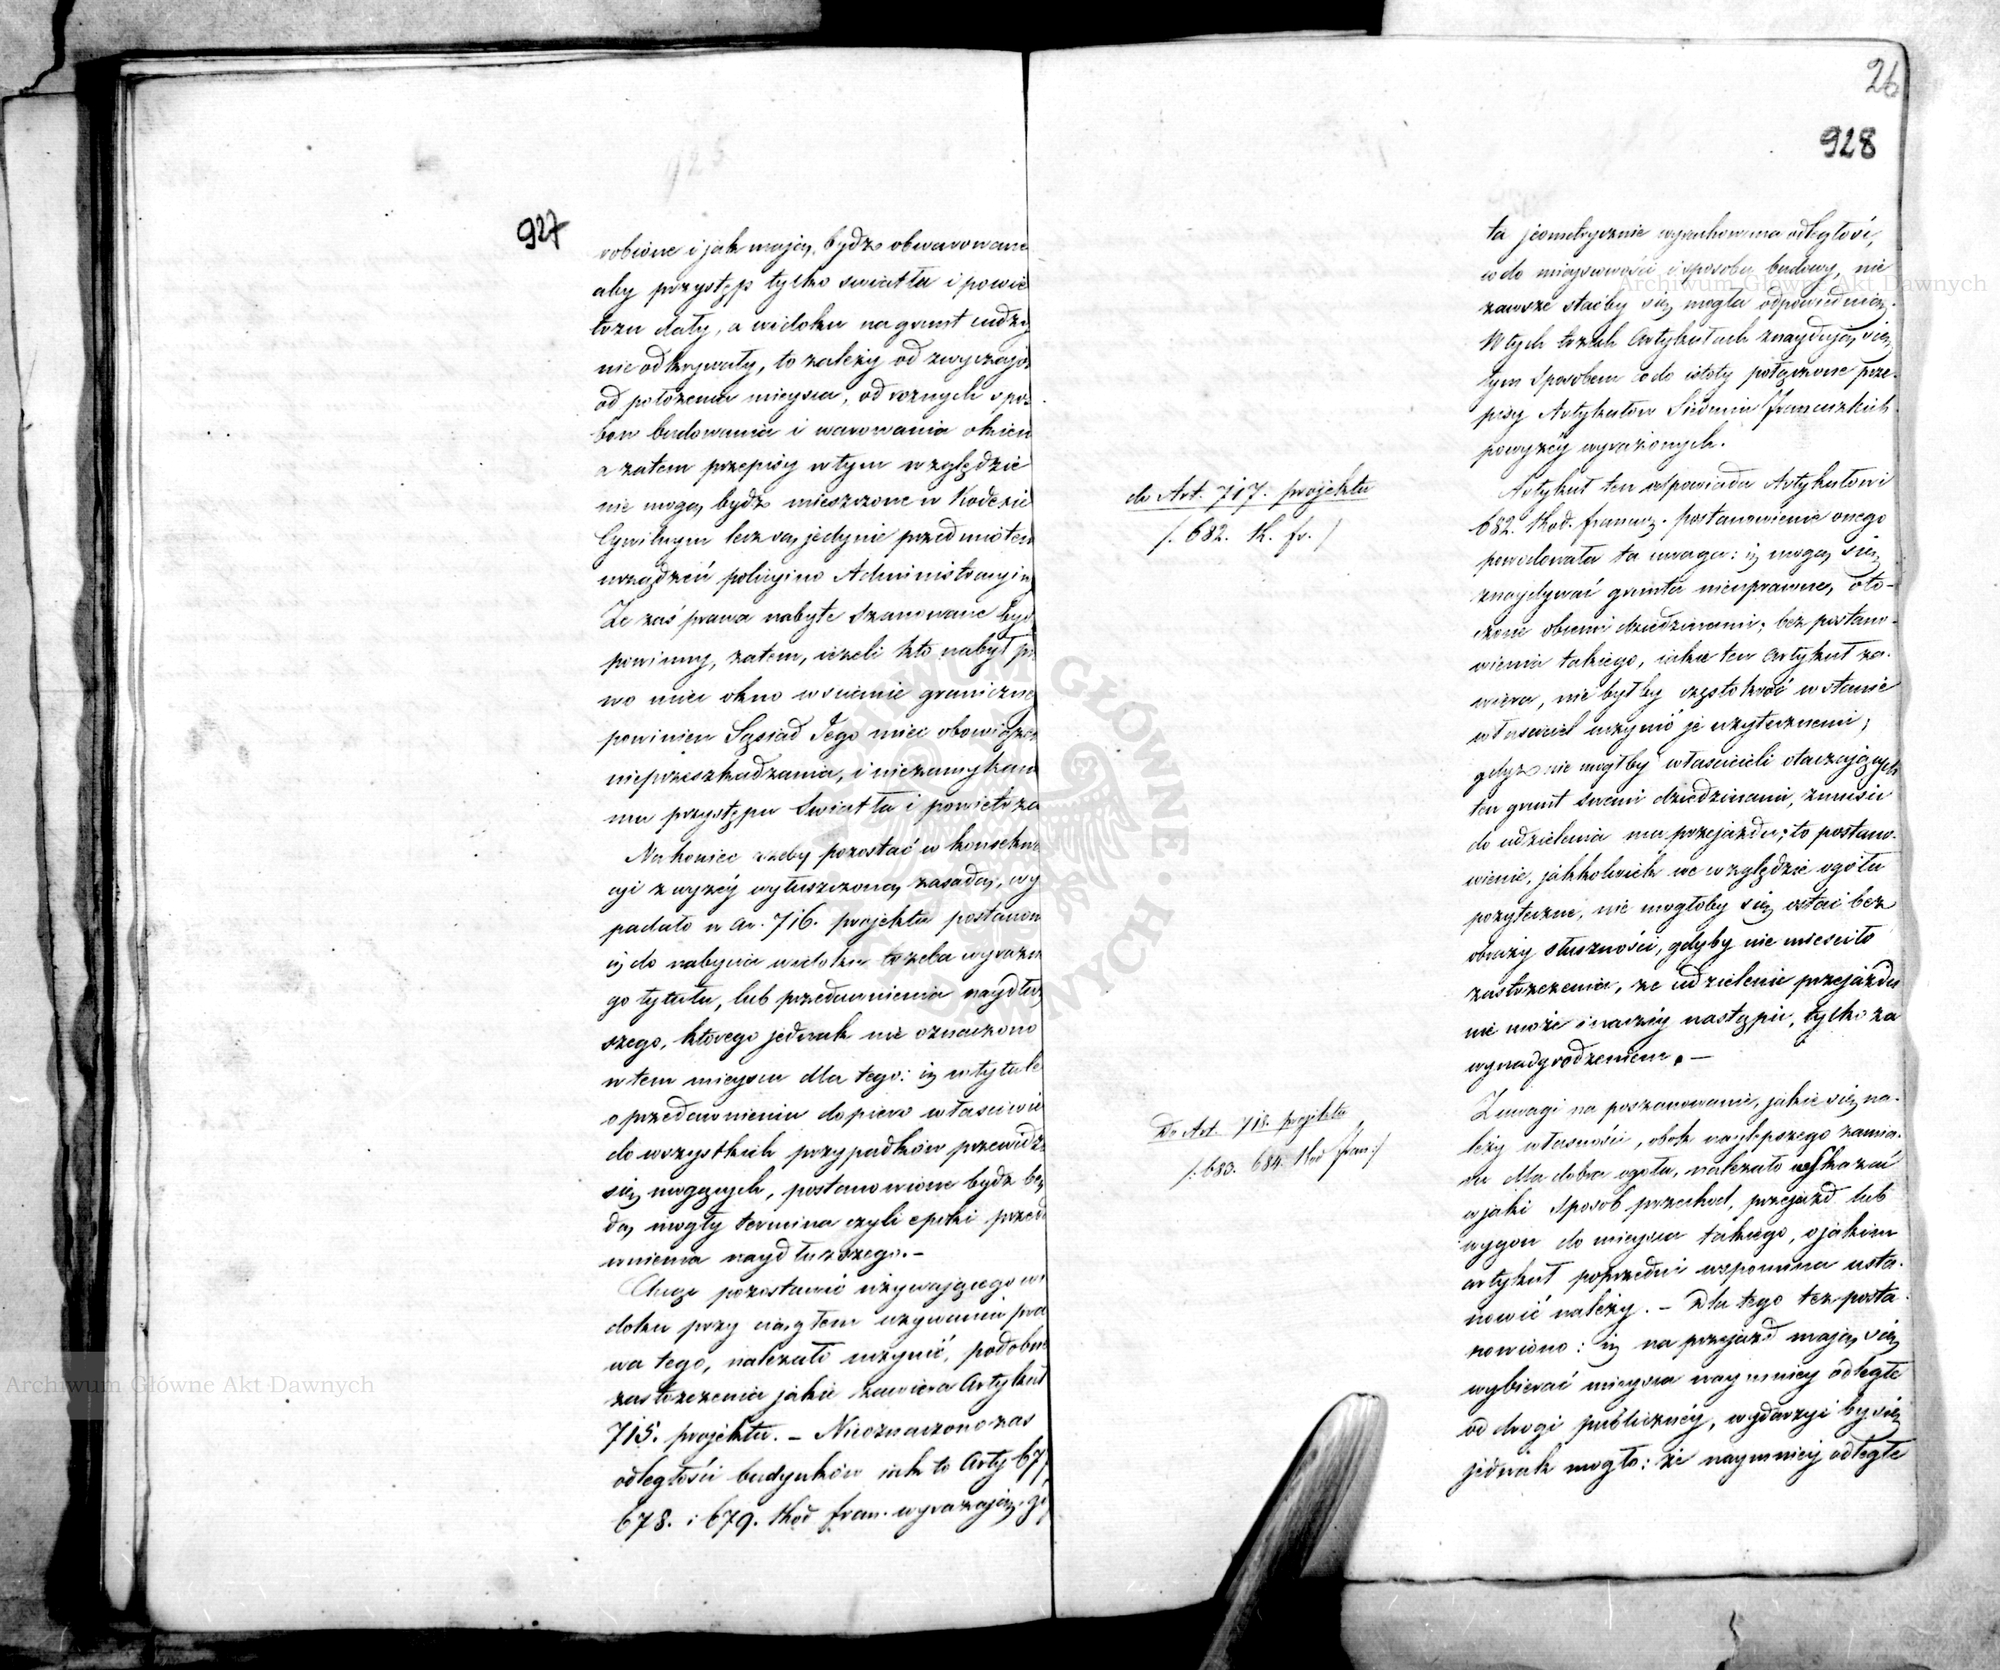 927
robione i jak mają bydz obwarowane
aby przystęp tylko swiatła i powie
trzu dały, a widoku na grunt cudzy
nie odkrywały, to zależy od zwyczajów
od położenia mieysca, od roznych spos
bow budowania i warowania okien
a zatem przepisy w tym względzie
nie mogą bydz mieszczone w Kodexie
Cywilnym lecz są jedynie przedmiotem
urządzeń policyino Administracyin
Ze zaś prawa nabyte szanowane bydz
powinny, zatem, ieżeli kto nabył pr
wo miec okno w scianie graniczney
powinien Sąsiad Jego miec obowiązek
nieprzeszkadzania, i niezamykan
ma przystępu Swiatła i powietrza
Nakoniec żeby pozostać w konsekwe
cyi z wyżéy wyłuszczoną zasadą, wy
padało w Ar. 716. projektu postanow
iż do nabycia widoku trzeba wyraźn
go tytułu, lub przedawnienia naydłuż
szego, którego jednak nie oznaczono
w tem mieyscu dla tego: iż w tytule
o przedawnieniu dopiero właściwie
do wszystkich przypadków przewidz
sié mogących, postanowione bydz bę
dą mogły termina czyli epoki przed
wnienia naydłuższego. –
Chcąc pozostawić używającego wi
doku przy ciągłem używaniu pra
wa tego, należało uczynić, podobne
zastrzeżenia jakie zawiera Artykuł
715. projektu. – Nieoznaczono zas
odległości budynków iak to Arty 677
678. i 679. Kod fran. wyrażają, gdy
26
928
ta jeometrycznie wyrachowana odległość,
co do mieyscowości i sposobu budowy, nie
zawsze staćby się mogła odpowiednią.
W tych trzech Artykułach znayduią się
tym Sposobem co do istoty połączone prze-
pisy Artykułow Siedmiu francuzkich
powyżéy wyrażonych.
do Art. 717. projektu
/. 682. K. fr. /
Artykuł ten odpowiada Artykułowi
682. Kod. francuz. postanowienie onego
powodowała ta uwaga: iż mogą się
znaydywać grunta nieuprawne, oto-
czone obcemi dziedzinami; bez postano-
wienia takiego, iakie ten Artykuł za-
wiera, nie byłby częstokroć w stanie
właściciel uczynić je użytecznemi;
gdyż nie mógłby właścicieli otaczających
ten grunt swemi dziedzinami, zmusić
do udzielenia mu przejazdu; to postano-
wienie, jakkolwiek we względzie ogółu
pożyteczne, nie mogłoby się ostać bez
obrazy słuszności, gdyby nie mieściło
zastrzeżenia, że udzielenie przejazdu
nie może inaczéy nastąpić, tylko za
wynadgrodzeniem. –
Do Art. 718. projektu
/. 683. 684. Kod fran: /
Z uwagi na poszanowanie, jakie się na-
leży własności, obok naylepszego zamia-
ru dla dobra ogółu, należało wskazać
w jaki Sposob przechod, przejazd lub
wygon do mieysca takiego, o jakiem
artykuł poprzedni wspomina usta-
nowić należy. – Dla tego też posta-
nowiono: iż na przejazd mają się
wybierać mieysca naymniey odległe
od drogi publicznéy, wydarzyć by się
jednak mogło: że naymniéy odległe
Archiwum Główne Akt Dawnych
Archiwum Główne Akt Dawnych
ARCHIWUM GŁÓWNE AKT DAWNYCH